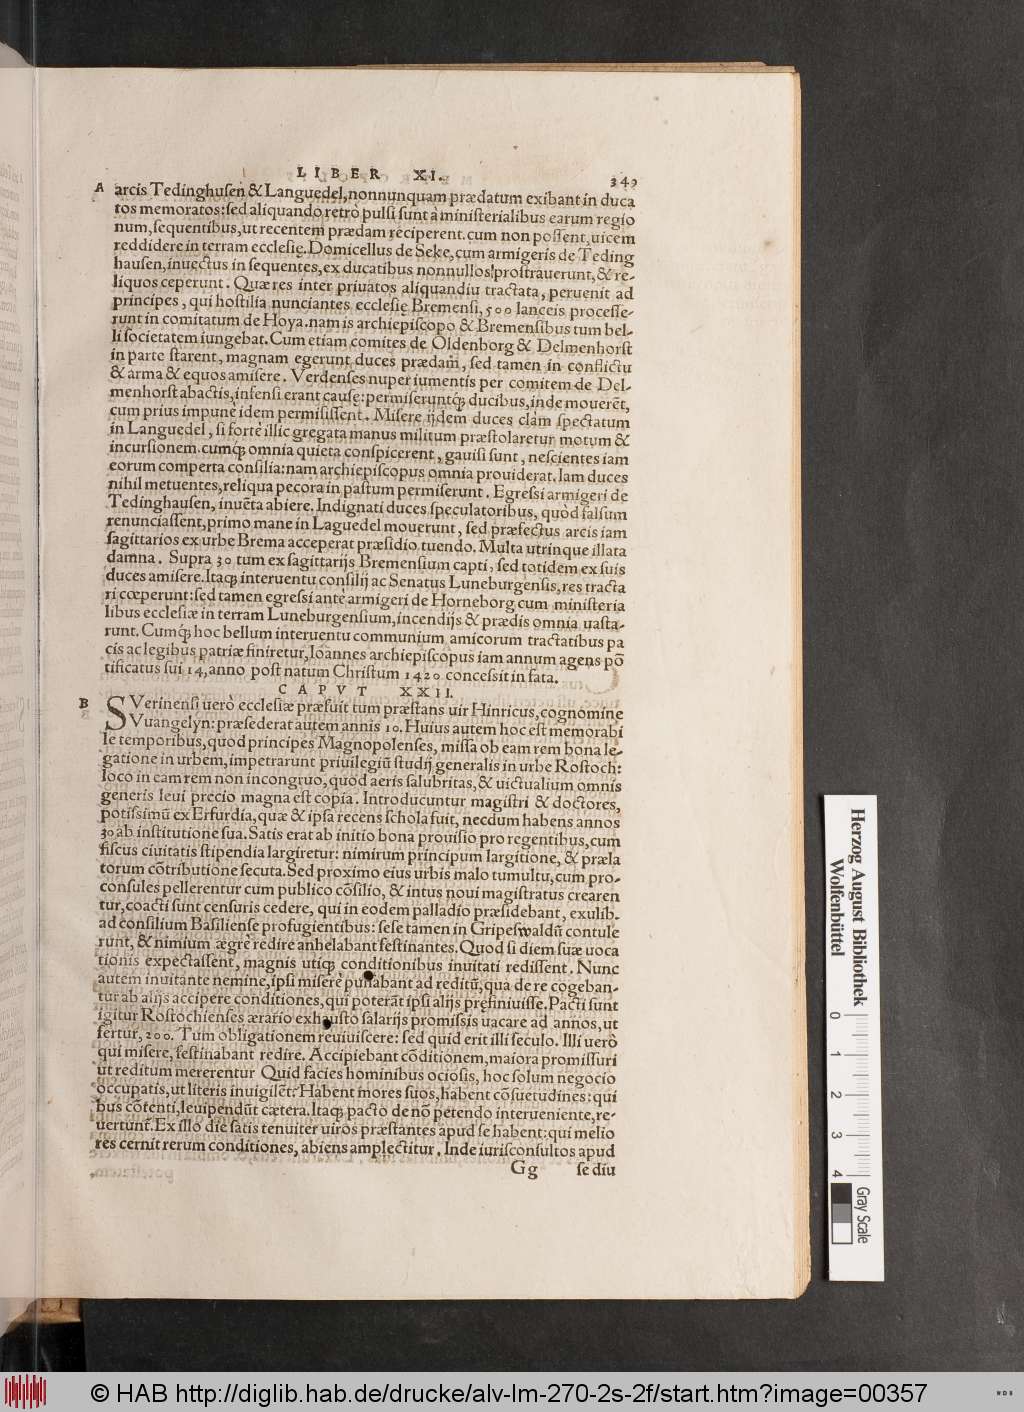 LIBER XI. 349
A arcis Tedinghusen & Languedel, nonnunquam prædatum exibant in duca
tos memoratos: sed aliquando retrò pulsi sunt à ministerialibus earum regio
num, sequentibus, ut recentem prædam reciperent. cum non possent, uicem
reddidere in terram ecclesię. Domicellus de Seke, cum armigeris de Teding
hausen, inuectus in sequentes, ex ducatibus nonnullos prostrauerunt, & re-
liquos ceperunt. Quæ res inter priuatos aliquandiu tractata, peruenit ad
principes, qui hostilia nunciantes ecclesię Bremensi, 500 lanceis processe-
runt in comitatum de Hoya. nam is archiepiscopo & Bremensibus tum bel-
li societatem iungebat. Cum etiam comites de Oldenborg & Delmenhorst
in parte starent, magnam egerunt duces prædam, sed tamen in conflictu
& arma & equos amisere. Verdenses nuper iumentis per comitem de Del-
menhorst abactis, infensi erant causę: permiseruntq́; ducibus, inde mouerẽt,
cum prius impunè idem permisissent. Misere ijdem duces clàm spectatum
in Languedel, si fortè illic gregata manus militum præstolaretur motum &
incursionem. cumq́; omnia quieta conspicerent, gauisi sunt, nescientes iam
eorum comperta consilia: nam archiepiscopus omnia prouiderat. Iam duces
nihil metuentes, reliqua pecora in pastum permiserunt. Egressi armigeri de
Tedinghausen, inuẽta abiere. Indignati duces speculatoribus, quòd falsum
renunciassent, primo mane in Laguedel mouerunt, sed præfectus arcis iam
sagittarios ex urbe Brema acceperat præsidio tuendo. Multa utrinque illata
damna. Supra 30 tum ex sagittarijs Bremensium capti, sed totidem ex suis
duces amisere. Itaq; interuentu consilij ac Senatus Luneburgensis, res tracta
ri cœperunt: sed tamen egressi antè armigeri de Horneborg cum ministeria
libus ecclesiæ in terram Luneburgensium, incendijs & prædis omnia uasta-
runt. Cumq́; hoc bellum interuentu communium amicorum tractatibus pa
cis ac legibus patriæ finiretur, Ioannes archiepiscopus iam annum agens põ
tificatus sui 14, anno post natum Christum 1420 concessit in fata.
CAPVT XXII.
B SVerinensi uerò ecclesiæ præfuit tum præstans uir Hinricus, cognomine
Vuangelyn: præsederat autem annis 10. Huius autem hoc est memorabi
le temporibus, quod principes Magnopolenses, missa ob eam rem bona le-
gatione in urbem, impetrarunt priuilegiũ studij generalis in urbe Rostoch:
loco in eam rem non incongruo, quòd aeris salubritas, & uictualium omnis
generis leui precio magna est copia. Introducuntur magistri & doctores,
potissimũ ex Erfurdia, quæ & ipsa recens schola fuit, necdum habens annos
30 ab institutione sua. Satis erat ab initio bona prouisio pro regentibus, cum
fiscus ciuitatis stipendia largiretur: nimirum principum largitione, & præla
torum cõtributione secuta. Sed proximo eius urbis malo tumultu, cum pro-
consules pellerentur cum publico cõsilio, & intus noui magistratus crearen
tur, coacti sunt censuris cedere, qui in eodem palladio præsidebant, exulib.
ad consilium Basiliense profugientibus: sese tamen in Gripeswaldũ contule
runt, & nimium ægrè redire anhelabant festinantes. Quod si diem suæ uoca
tionis expectassent, magnis utiq; conditionibus inuitati redissent. Nunc
autem inuitante nemine, ipsi miserè pulsabant ad reditũ, qua de re cogeban-
tur ab alijs accipere conditiones, qui poterãt ipsi alijs pręfiniuisse. Pacti sunt
igitur Rostochienses ærario exhausto salarijs promissis uacare ad annos, ut
fertur, 200. Tum obligationem reuiuiscere: sed quid erit illi seculo. Illi uerò
qui misere, festinabant redire. Accipiebant cõditionem, maiora promissuri
ut reditum mererentur Quid facies hominibus ociosis, hoc solum negocio
occupatis, ut literis inuigilẽt: Habent mores suos, habent cõsuetudines: qui
bus cõtenti, leuipendũt cætera. Itaq; pacto de nõ petendo interueniente, re-
uertunt. Ex illo die satis tenuiter uiros præstantes apud se habent: qui melio
res cernit rerum conditiones, abiens amplectitur. Inde iurisconsultos apud
Gg se diu
Herzog August Bibliothek
Wolfenbüttel
0 1 2 3 4
Gray Scale
© HAB http://diglib.hab.de/drucke/alv-lm-270-2s-2f/start.htm?image=00357